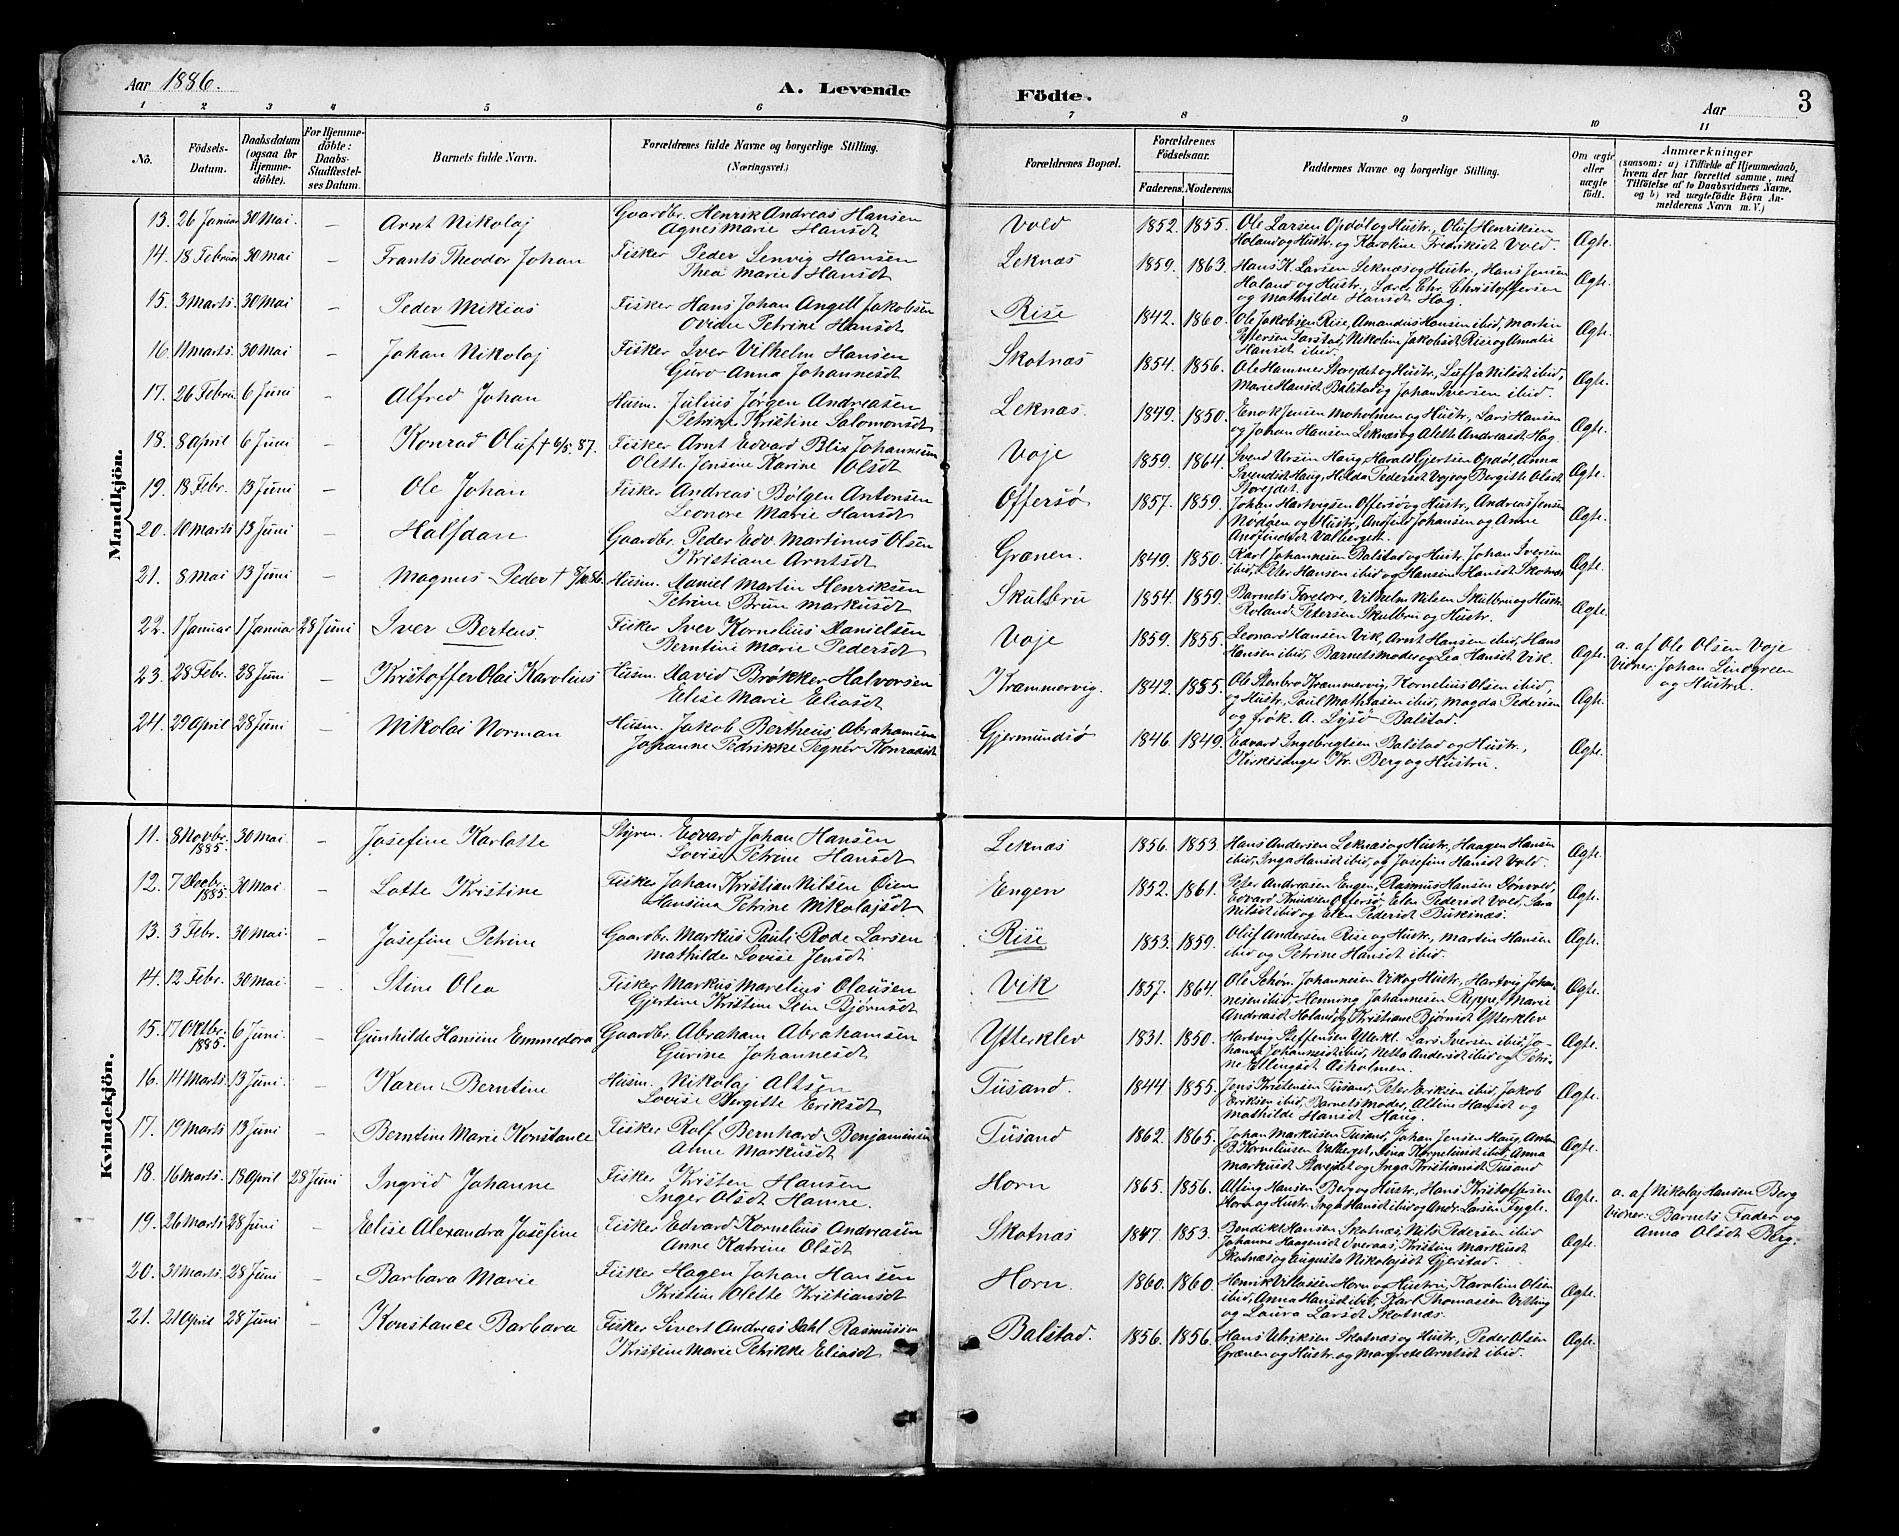 Aar 1886.
A. Levende
Födte.
Aar
3
1 2 3 4 5 6 7 8 9 10 11
No.
Födsels-Datum.
Daabsdatum (ogsaa for Hjemme-döbte).
For Hjemme-döbte: Daabs-Stadfæstelses Datum.
Barnets fulde Navn.
Forældrenes fulde Navne og borgerlige Stilling. (Næringsvei.)
Forældrenes Bopæl.
Forældrenes Födselsaar.
Faderens. Moderens.
Faddernes Navne og borgerlige Stilling.
Om ægte eller uægte födt.
Anmærkninger
(saasom: a) i Tilfælde af Hjemmedaab,
hvem der har forrettet samme, med
Tilföielse af to Daabsvidners Navne,
og b) ved uægtefödte Börn An-
melderens Navn m. V.)
Mandkjön.
13. 26 Januar 30 Mai — Arnt Nikolaj Gaardbr. Henrik Andreas Hansen Vold 1852. 1855. Ole Larsen Opdøl og Hustr., Oluf Henriksen Ægte.
Agnes Marie Hansdt Holand og Hustr. og Karoline Fredriksdt Vold.
14. 18 Februar 30 Mai — Frants Theodor Johan Fisker Peder Senvig Hansen Leknæs 1859. 1863. Hans K. Larsen Leknæs og Hustr., Hans Jensen Ægte.
Thea Marie Hansdt Holand og Hustr., Lars Chr. Christoffersen
og Mathilde Hansdt Hag.
15. 3 Marts 30 Mai — Peder Mikias Fisker Hans Johan Angell Jakobsen Rise 1842. 1860. Ole Jakobsen Rise, Amandus Hansen ibid, Martin Ægte.
Ovidie Petrine Hansdt Petersen Farstad, Nikoline Jakobsdt Rise og Amalie
Hansdt ibid.
16. 11 Marts. 30 Mai — Johan Nikolaj Fisker Iver Vilhelm Hansen Skotnæs 1854. 1856. Ole Hammer Storejdet og Hustr., Luffa Nilsdt ibid, Ægte.
Guro Anna Johannesdt Marie Hansdt Balstad og Johan Iversen ibid.
17. 26 Febru. 6 Juni — Alfred Johan Husm. Julius Jørgen Andreasen Leknæs. 1849. 1850. Enok Jensen Moholmen og Hustr., Lars Hansen Ægte.
Petrine Kristine Salomonsdt og Johan Hansen Leknæs og Alette Andreasdt Hag.
18. 8 April 6 Juni — Konrad Oluf † 6/5. 87. Fisker Arnt Edvard Blix Johannesen Voje 1859. 1864. Svend Ursin Haug, Harald Gjertsen Opdøl, Anna Ægte.
Olette Jensine Karine Olsdt Svendsdt Haug, Hilda Pedersdt Voje og Bergitte Olsdt
Storejdet.
19. 18 Febr. 13 Juni — Ole Johan Fisker Andreas Bølgen Antonsen Offersø 1857. 1859. Johan Hartvigsen Offersø og Hustr., Andreas Jensen Ægte.
Leonore Marie Hansdt Nødøen og Hustr., Anfind Johansen og Anne
Andfindsdt Valberget.
20. 10 Marts 13 Juni — Halfdan Gaardbr. Peder Edv. Martinus Olsen Grænen. 1849. 1850. Karl Johannesen Balstad og Hustr., Johan Iversen Ægte.
Kristiane Arntsdt ibid, Peter Hansen ibid og Hansine Hansdt Skotnæs
21. 8 Mai 13 Juni — Magnus Peder † Husm. Daniel Martin Henriksen Skulbru 1854. 1859. Barnets Forelore, Vilhelm Nilsen Skulbru og Hustr. Ægte.
Petrine Brun Markusdt Roland Petersen Skulbru og Hustr.
22. 1 Januar 1 Januar 28 Juni Iver Berteus. Fisker Iver Kornelius Danielsen Voje 1859. 1855. Leonard Hansen Vik, Arnt Hansen ibid, Hans Ægte. a. af Ole Olsen Voje
Berntine Marie Pedersdt Hansen ibid, Barnets Moder og Lea Hansdt Vik. Vidner: Johan Lindgreen
og Hustru.
23. 28 Febr. 28 Juni — Kristoffer Olai Karolius Husm. David Brøkker Halvorsen Krammervig. 1842. 1855. Ole Stenbro Krammervig, Kornelius Olsen ibid, Ægte.
Elise Marie Eliasdt og Hustr., Paul Mathiasen ibid, Magda Pedersen
og frøk. A. Lysø Balstad.
24. 29 April 28 Juni — Nikolai Norman Husm. Jakob Bertheus Abrahamsen Gjermundsø 1846. 1849. Edvard Ingebregtsen Balstad og Hustr., Ægte.
Johanne Fedrikke Tegnér Konradsdt Kirkesanger Kr. Berg og Hustru.
Kvindekjön.
11. 8 Novbr. 1885. 30 Mai — Josefine Karlotte Styrm. Edvard Johan Hansen Leknæs 1856. 1853. Hans Andersen Leknæs og Hustr., Haagen Hansen Ægte.
Lovise Petrine Hansdt ibid, Inga Hansdt ibid, og Josefine Hansdt Vold.
12. 7 Decbr. 1885. 30 Mai — Lotte Kristine Fisker Johan Kristian Nilsen Øien Engen 1852. 1861. Peter Andreasen Engen, Rasmus Hansen Dønvold, Ægte.
Hansina Petrine Nikolajsdt Edvard Knudsen Offersø, Elen Pedersdt Vold, Sara
Nilsdt ibid og Elen Pedersdt Buksnæs.
13. 3 Febr. 30 Mai. — Josefine Petrine Gaardbr. Markus Pauli Rode Larsen Rise 1853. 1859. Oluf Andersen Rise og Hustr., Martin Hansen Ægte.
Mathilde Lovise Jensdt ibid og Petrine Hansdt ibid.
14. 12 Febr. 30 Mai. — Stine Olea Fisker Markus Marelius Olausen Vik 1857. 1864. Ole Schøn. Johannesen Vik og Hustr., Hartvig Johan- Ægte.
Gjertine Kristine Lein Bjørnsdt nesen ibid, Henning Johannesen Reppe, Marie
Andreasdt Holand og Kristiane Bjørnsdt Ytterklev
15. 17 Oktbr. 1885. 6 Juni. — Gunhilde Hansine Emmedora Gaardbr. Abraham Abrahamsen Ytterklev 1831. 1850. Hartvig Steffensen Ytterkl. Lars Iversen ibid, Jo- Ægte.
Gurine Johannesdt hanna Johannesdt ibid, Netta Andersdt ibid og Petri-
ne Ellingsdt Aholmen.
16. 14 Marts. 13 Juni. — Karen Berntine Husm. Nikolaj Altsen Tusand. 1844. 1855. Jens Kristensen Tusand, Peter Eriksen ibid, Jakob Ægte.
Lovise Bergitte Eriksdt Eriksen ibid, Barnets Moder, Altine Hansdt og
Mathilde Hansdt Haug.
17. 19 Marts 13 Juni — Berntine Marie Konstance Fisker Rolf Bernhard Benjaminsen Tusand 1862. 1865. Johan Markusen Tusand, Johan Jensen Haug, Anton Ægte.
Anne Markusdt B. Korneliusen Valberget, Lina Korneliusdt ibid, Anna
Markusdt Storejdet og Inga Kristiansdt Tusand
18. 16 Marts. 18 April 28 Juni Ingrid Johanne Fisker Kristen Hansen Horn 1865. 1856. Alfing Hansen Berg og Hustr., Hans Kristoffersen Ægte. a. af Nikolaj Hansen Berg
Inger Olsdt Hamre. Horn og Hustr. Inga Hansdt ibid og Andr. Larsen Fygle. Vidner: Barnets Fader og
Anna Olsdt Berg.
19. 26 Marts 28 Juni — Elise Alexandra Josefine Fisker Edvard Kornelius Andreasen Skotnæs 1847. 1853. Bendikt Hansen Skotnæs, Nils Pedersen ibid Ægte.
Anne Katrine Olsdt Johanne Haagensdt Sveraas, Kristine Markusdt
Skotnæs og Augusta Nikolajsdt Gjerstad.
20. 3 Marts. 28 Juni — Barbara Marie Fisker Hagen Johan Hansen Horn. 1860. 1860. Henrik Villassen Horn og Hustru, Karoline Olsen Ægte.
Kristine Olette Kristiansdt ibid, Anna Hansdt ibid, Karl Thomassen Utting
og Laura Larsdt Skotnæs.
21. 21 April 28 Juni — Konstance Barbara Fisker Sivert Andreas Dahl Rasmussen Balstad. 1856. 1856. Hans Ulriksen Skotnæs og Hustr., Peder Olsen Ægte.
Kristine Marie Petrikke Eliasdt Grænen og Hustr. og Margrete Arntsdt ibid.